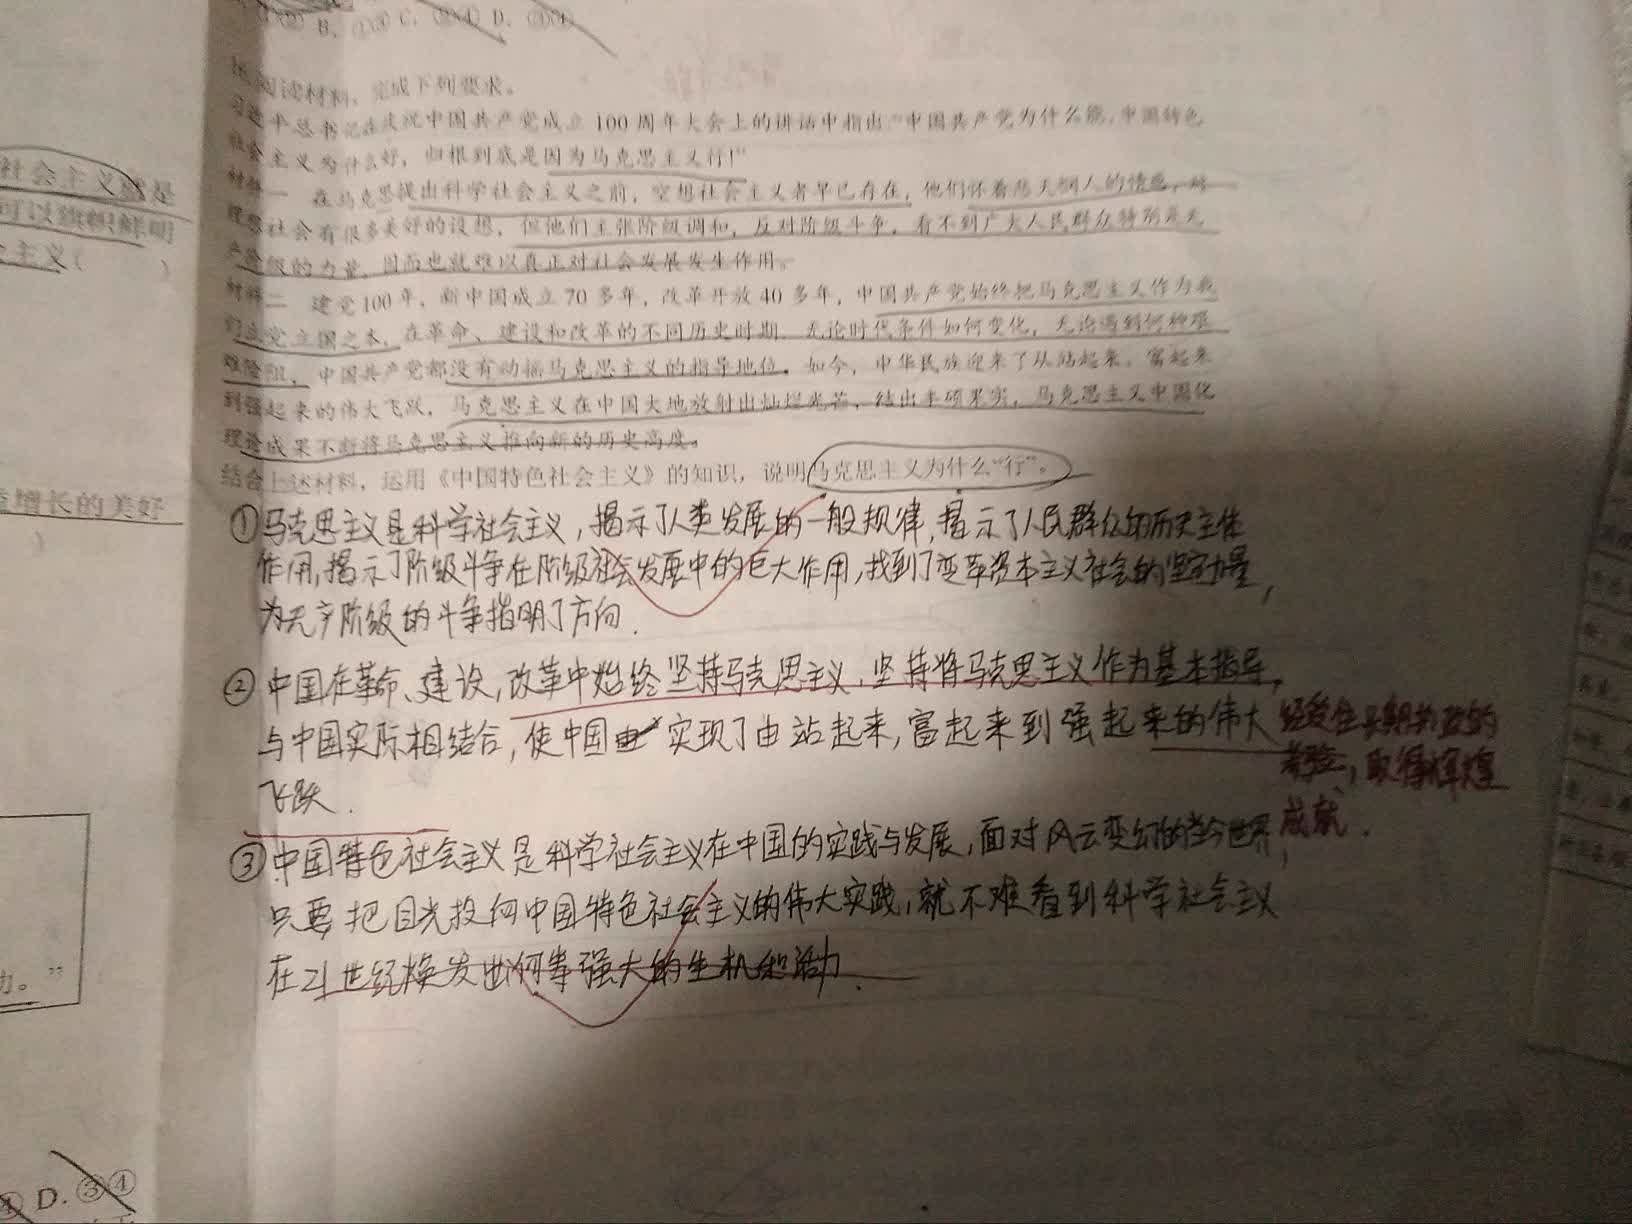 B. ①③ C. ②④ D. ③④
16.阅读材料，完成下列要求。
习近平总书记在庆祝中国共产党成立100周年大会上的讲话中指出:“中国共产党为什么能,中国特色
社会主义为什么好，归根到底是因为马克思主义行!”
材料一 在马克思提出科学社会主义之前，空想社会主义者早已存在，他们怀着悲天悯人的情感，对
理想社会有很多美好的设想，但他们主张阶级调和，反对阶级斗争，看不到广大人民群众特别是无
产阶级的力量，因而也就难以真正对社会发展发生作用。
材料二 建党100年，新中国成立70多年，改革开放40多年，中国共产党始终把马克思主义作为我
们立党立国之本，在革命、建设和改革的不同历史时期，无论时代条件如何变化，无论遇到何种艰
难险阻，中国共产党都没有动摇马克思主义的指导地位。如今，中华民族迎来了从站起来、富起来
到强起来的伟大飞跃，马克思主义在中国大地放射出灿烂光芒，结出丰硕果实，马克思主义中国化
理论成果不断将马克思主义推向新的历史高度。
结合上述材料，运用《中国特色社会主义》的知识，说明马克思主义为什么“行”。
①马克思主义是科学社会主义，揭示了人类发展的一般规律，揭示了人民群众的历史主体
作用，揭示了阶级斗争在阶级社会发展中的巨大作用，找到了变革资本主义社会的坚定力量，
为无产阶级的斗争指明了方向.
②中国在革命、建设，改革中始终坚持马克思主义，坚持将马克思主义作为基本指导，
与中国实际相结合，使中国实现了由站起来，富起来到强起来的伟大
飞跃.
经受住长期执政的
考验，取得辉煌
成就.
③中国特色社会主义是科学社会主义在中国的实践与发展，面对风云变幻的当今世界，
只要把目光投向中国特色社会主义的伟大实践，就不难看到科学社会主义
在21世纪焕发出何等强大的生机和活力.
社会主义就是
可以旗帜鲜明
主义( )
益增长的美好
)
力。”
D. ③④